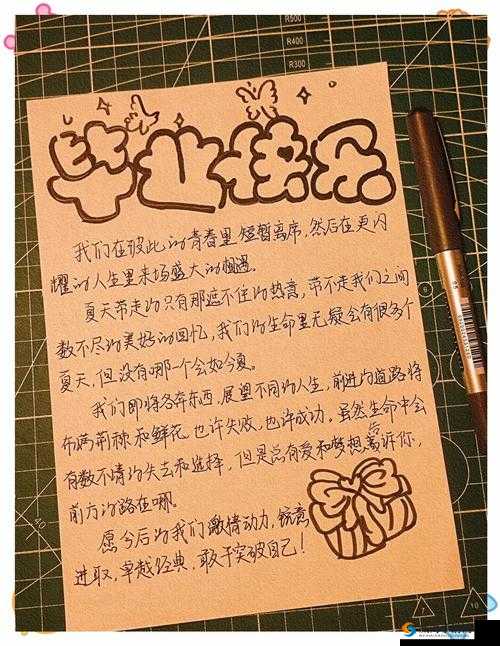 R500
R400
R300
毕业快乐
我们在彼此的青春里短暂离席，然后在更闪
耀的人生里来场盛大的相遇。
夏天带走的只有那遮不住的热意，带不走我们之间
数不尽的美好的回忆，我们的生命里无疑会有很多个
夏天，但没有哪一个会如今夏。
我们即将各奔东西，展望不同的人生，前进的道路将
布满荆棘和鲜花，也许失败，也许成功。虽然生命中会
有数不清的失去和选择，但是总有爱和梦想告诉你，
前方的路在哪。
愿今后的我们激情动力，锐意
进取，卓越经典，敢于突破自己！
6
40
7
10